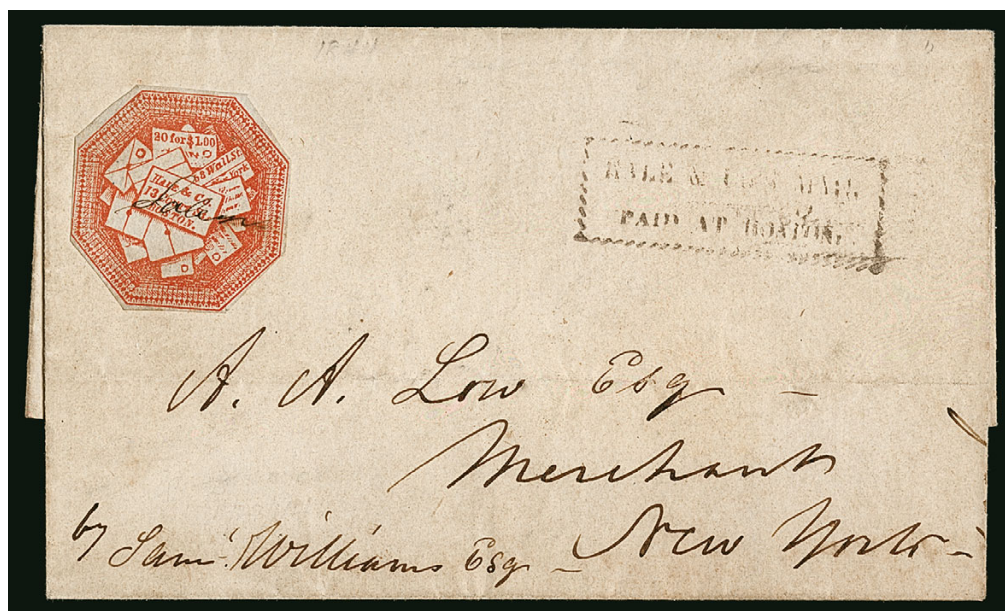 1844
20 for $1.00
58 Wall St.
New York
Hale & Co.
13
BOSTON.
Salem
HALE & CO'S MAIL
PAID AT BOSTON.
A. A. Low Esq
Merchant
New York
by Saml. Williams Esq